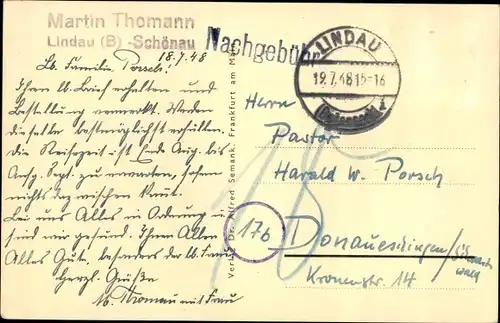 Martin Thomann
Lindau (B) -Schönau
Nachgebühr
18.7.48
Lb. Familie Porsch!
Ihren lb. Brief erhalten und
Bestellung vermerkt. Werden
dieselbe bestmöglichst erfüllen.
Die Reifezeit ist Ende Aug. bis
Anfg. Sept. zu erwarten, sofern
nichts dazwischen kommt.
Bei uns Alles in Ordnung u.
sind wir gesund. Ihnen Allen
Alles Gute, besonders der lb. Frau
Herzl. Grüße
M. Thomann mit Frau
Verlag Dr. Alfred Semank, Frankfurt am Main
LINDAU
19.7.48 15-16
(Bodensee)
18
17b
Herrn
Pastor
Harald W. Porsch
Donaueschingen/Schwarz
wald
Kronenstr. 14